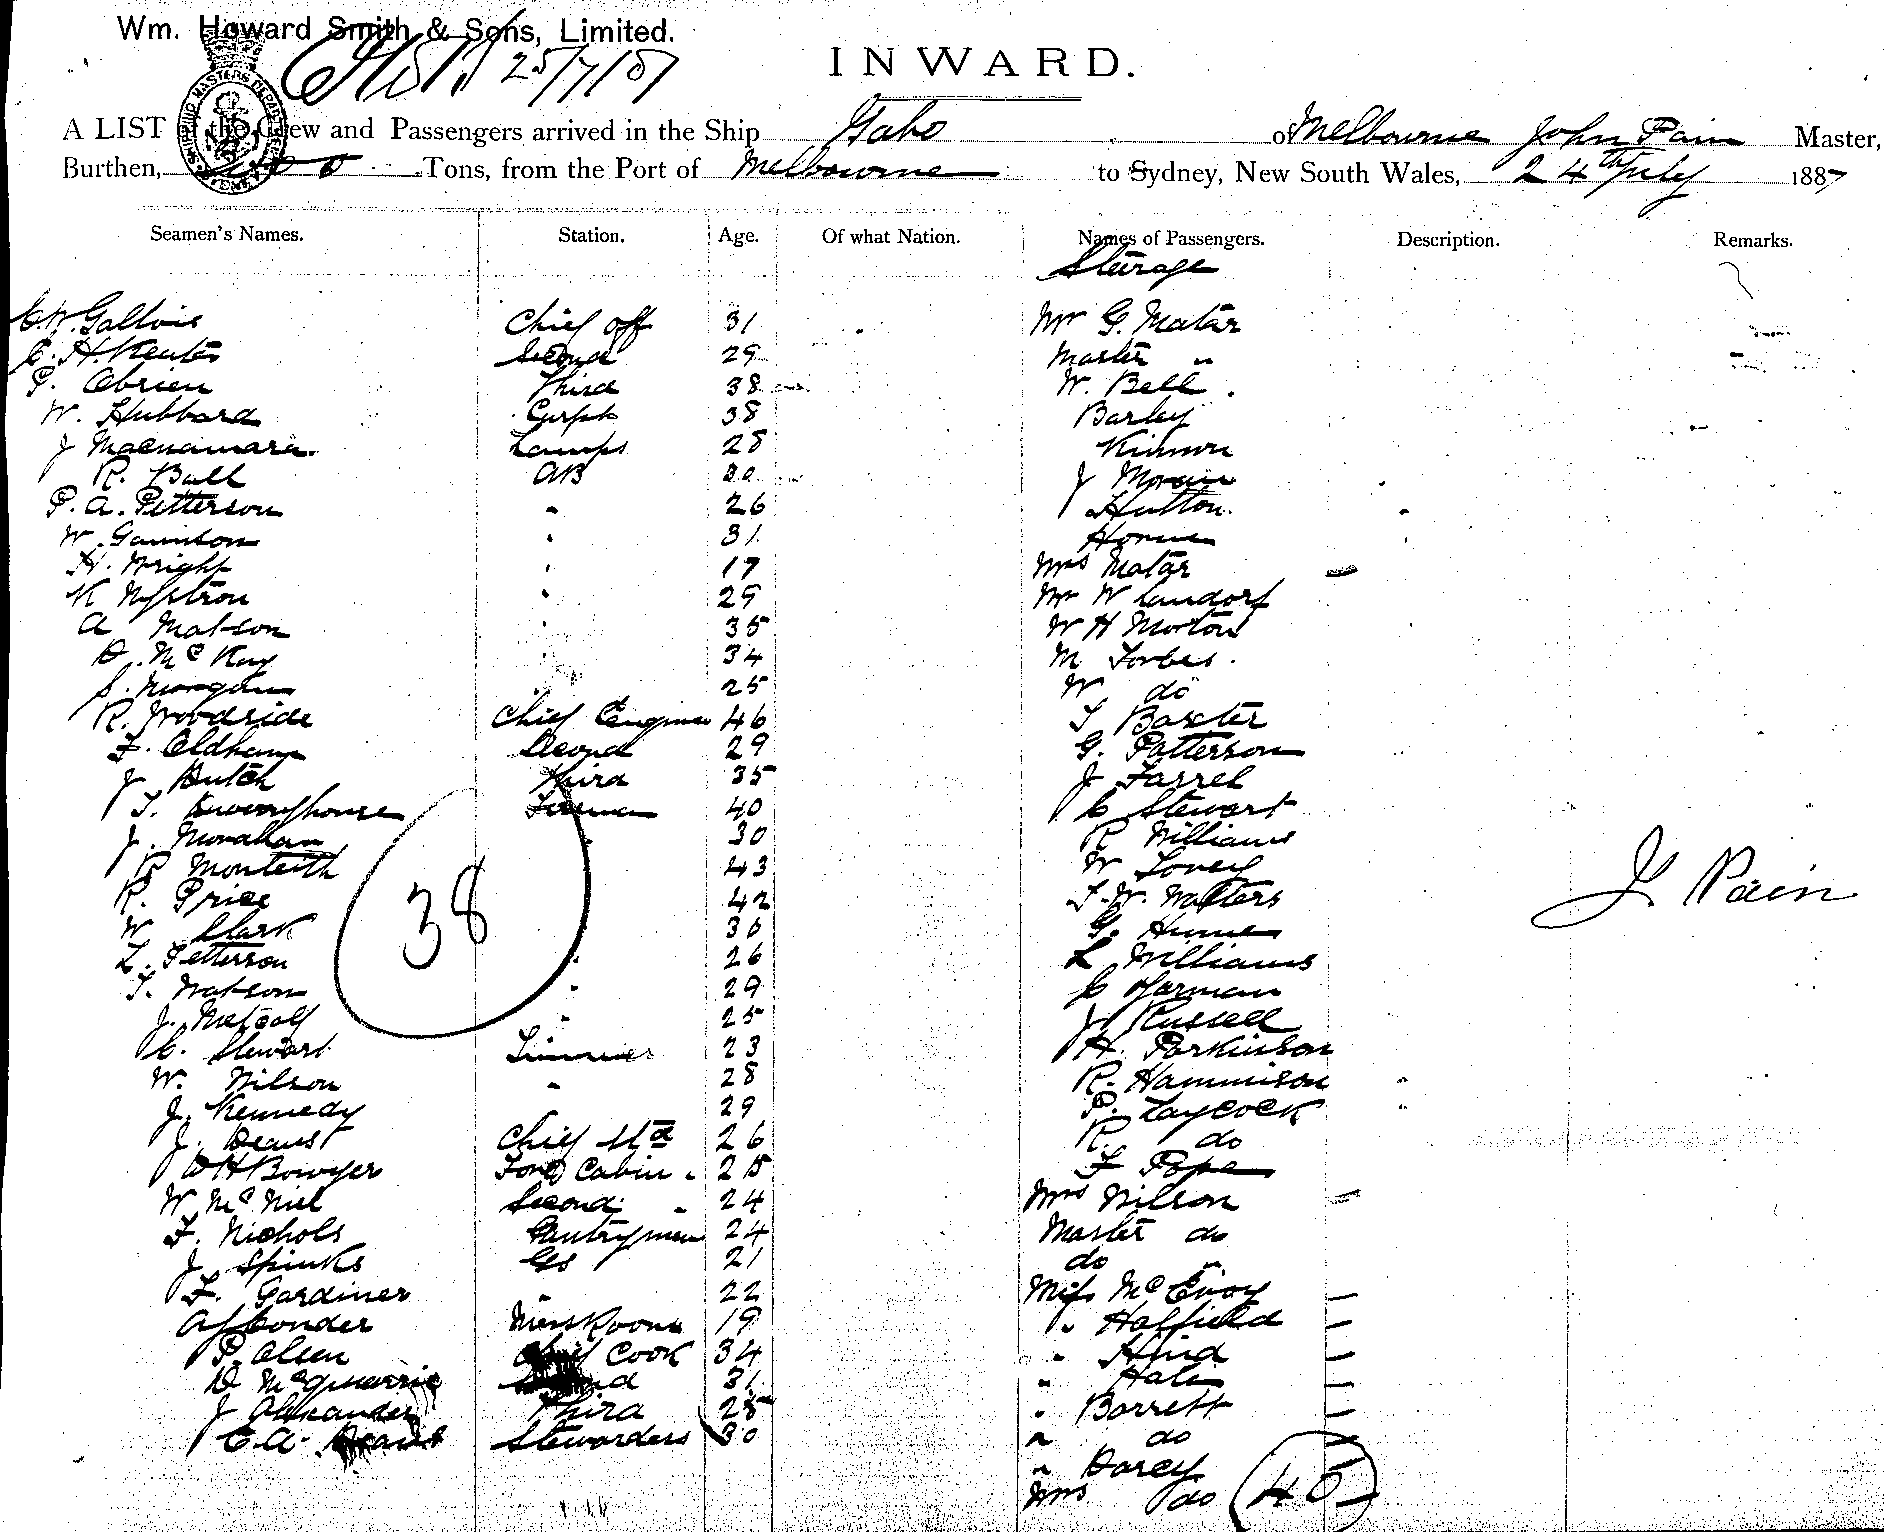 Wm. Howard Smith & Sons, Limited.
25/7/87
INWARD.
A LIST of the Crew and Passengers arrived in the Ship Gabo of Melbourne John Pain Master,
Burthen, Tons, from the Port of Melbourne to Sydney, New South Wales, 24th July 1887
Seamen's Names. Station. Age. Of what Nation. Names of Passengers. Description. Remarks.
Steerage
Chief off 31 Mr G. Matar
Second 29 Master "
P. Obrien Third 38 W. Bell
W. Hubbard 38 Barley
J Macnamara Lamps 28 Kinnon
R. Ball AB 30 J
P. A. Petterson " 26 Hutton
W. " 31
H. Wright " 19 Mrs Matar
K Nystron " 29 Mr W Landorf
A Matson " 35 W H Morton
D. McKay 34 M Forbes
S. Morgan 25 W do
R. Woodside Chief Engineer 46 T Baxter
F. Oldham Second 29 G. Patterson
J Third 35 J Farrel
T. Fireman 40 C Stewart
J. Monahan 30 R Williams
R Monteith 43 W
R. Price 42 T. W. Walters
W Clark 36 G. Hume
38
L. Petterson " 26 L Williams
T. Watson " 29 C Harman
J. Metcalf " 25 J Russell
C. Stewart Trimmer 23 H. Parkinson
W. Wilson " 28 R. Hammison
J. Kennedy 29 P. Laycock
J. Deans Chief Std 26 R. do
D H Bowyer Fore Cabin " 25 F Pope
W McNiel Second " 24 Mrs Wilson
F. Nichols Pantryman 24 Master do
J Spinks 21 do "
F. Gardiner " 22 Miss McEvoy
A J Conder Messroom 19 " Hatfield
P. Olsen Chief Cook 34 " Hind
D McQuarrie Second 31 " Hales
J Alexander Third 25 " Barrett
C. A. Stewardess 30 " do
" Darcy
Mrs do
40
J. Pain